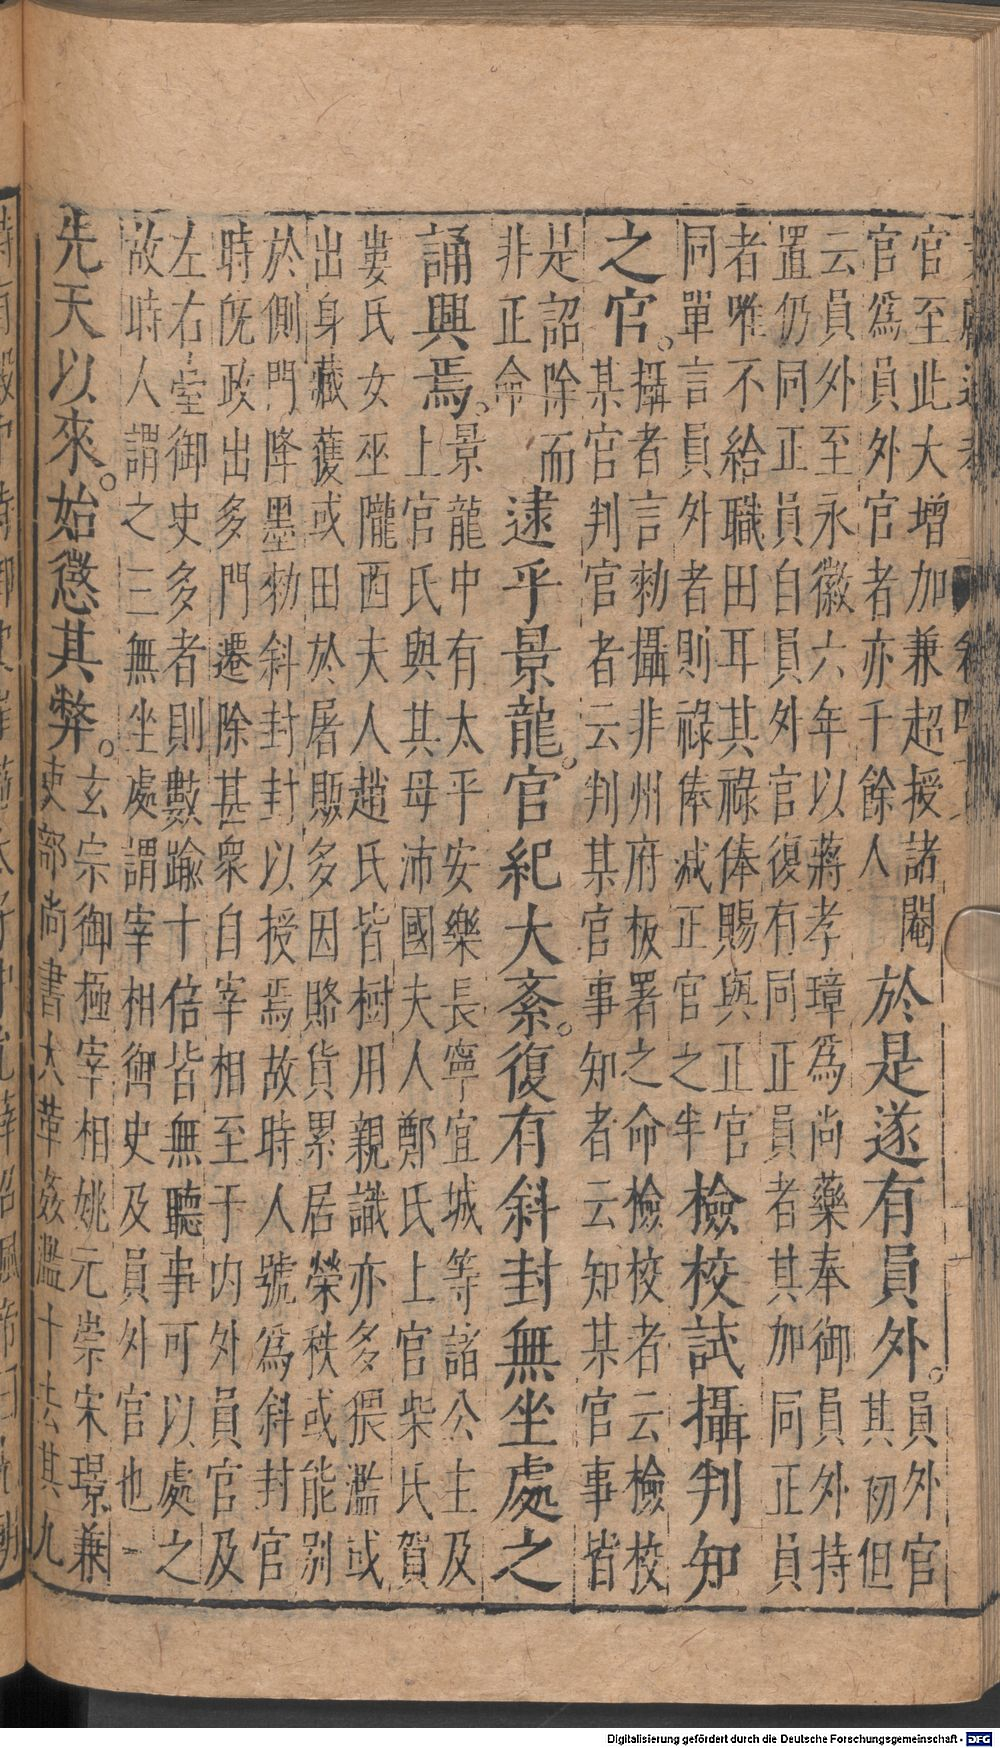 官至此大增加兼超授諸閹
官爲員外官者亦千餘人
於是遂有員外。
員外官
其初但
云員外至永徽六年以蔣孝璋爲尚藥奉御員外持
置仍同正員自員外官復有同正員者其加同正員
者唯不給職田耳其祿俸賜與正官
同單言員外者則祿俸减正官之半
檢校試攝判知
之官。
攝者言勑攝非州府板署之命檢校者云檢校
某官判官者云判某官事知者云知某官事皆
是詔除而
非正命
逮乎景龍。官紀大紊。復有斜封無坐處之
誦興焉。
景龍中有太平安樂長寧宜城等諸公主及
上官氏與其母沛國夫人鄭氏上官柴氏賀
婁氏女巫隴西夫人趙氏皆樹用親識亦多猥濫或
出身藏獲或田於屠販多因賂貨累居榮秩或能别
於側門降墨勑斜封封以授焉故時人號爲斜封官
時旣政出多門遷除甚衆自宰相至于内外員官及
左右臺御史多者則數踰十倍皆無聽事可以處之
故時人謂之三無坐處謂宰相御史及員外官也
先天以來。始懲其弊。
玄宗御極宰相姚元崇宋璟兼
吏部尚書大革姦濫十去其九
Digitalisierung gefördert durch die Deutsche Forschungsgemeinschaft - DFG